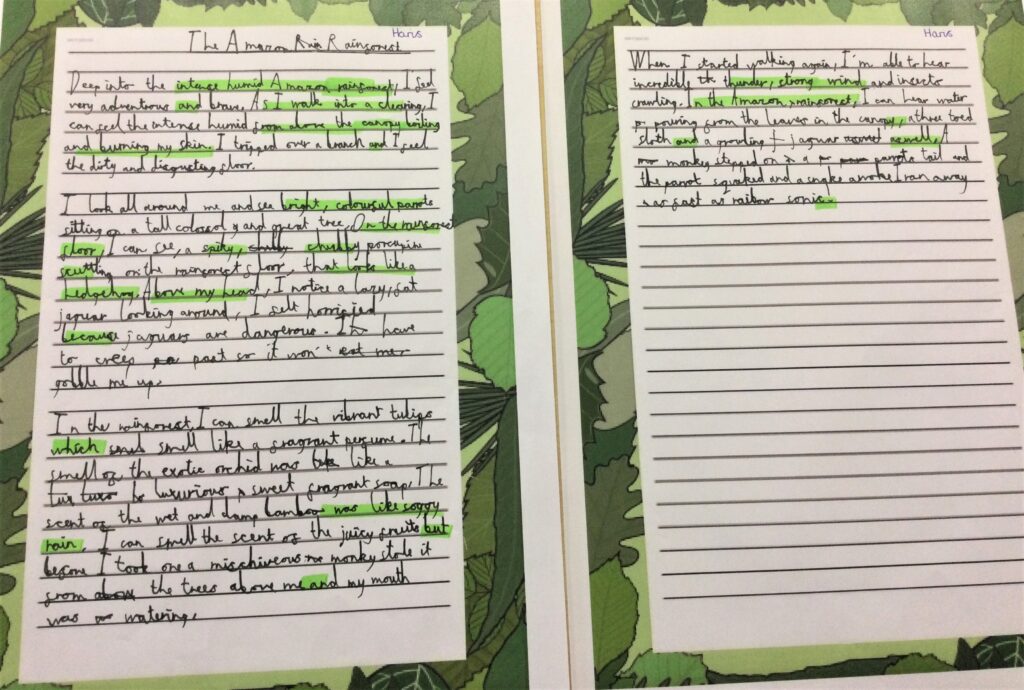 Haris
The Amazon Rainforest
Deep into the intense humid Amazon rainforest, I feel
very adventrous and brave. As I walk into a clearing, I
can feel the intense humid from above the canopy boiling
and burning my skin. I tripped over a branch and I feel
the dirty and disgusting floor.
I look all around me and see bright, colourful parrots
sitting a tall colossol y and great tree. On the rainforest
floor, I can see, a spiky, chubby porcupine
scuttling on the rainforest floor, that looks like a
hedgehog. Above my head, I notice a lazy, fat
jaguar looking around, I felt horrified
because jaguars are dangerous. I have
to creep past so it won't eat me
gobble me up.
In the rainforest, I can smell the vibrant tulips
which smell like a fragrant perfume. The
smell of the exotic orchid was like a
luxurious sweet fragrant soap. The
scent of the wet and damp bamboo was like soggy
rain. I can smell the scent of the juicy fruits but
before I took one a mischiveous monky stole it
from the trees above me and my mouth
was watering.
Haris
When I started walking again, I'm able to hear
incredibly thunder, strong wind and insects
crawling. In the Amazon rainforest, I can hear water
pouring from the leaves in the canopy, a three toed
sloth and a growling jaguar aswell. A
monkey stepped on a parrots tail and
the parrot squaked and a snake awoke I ran away
as fast as sonic.